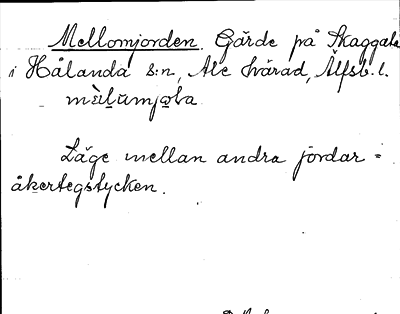 Mellomjorden. Gärde på Skaggata
i Hålanda s:n, Ale härad, Älfsb. l.
mèlumjoła
Läge mellan andra jordar =
åkertegstycken.